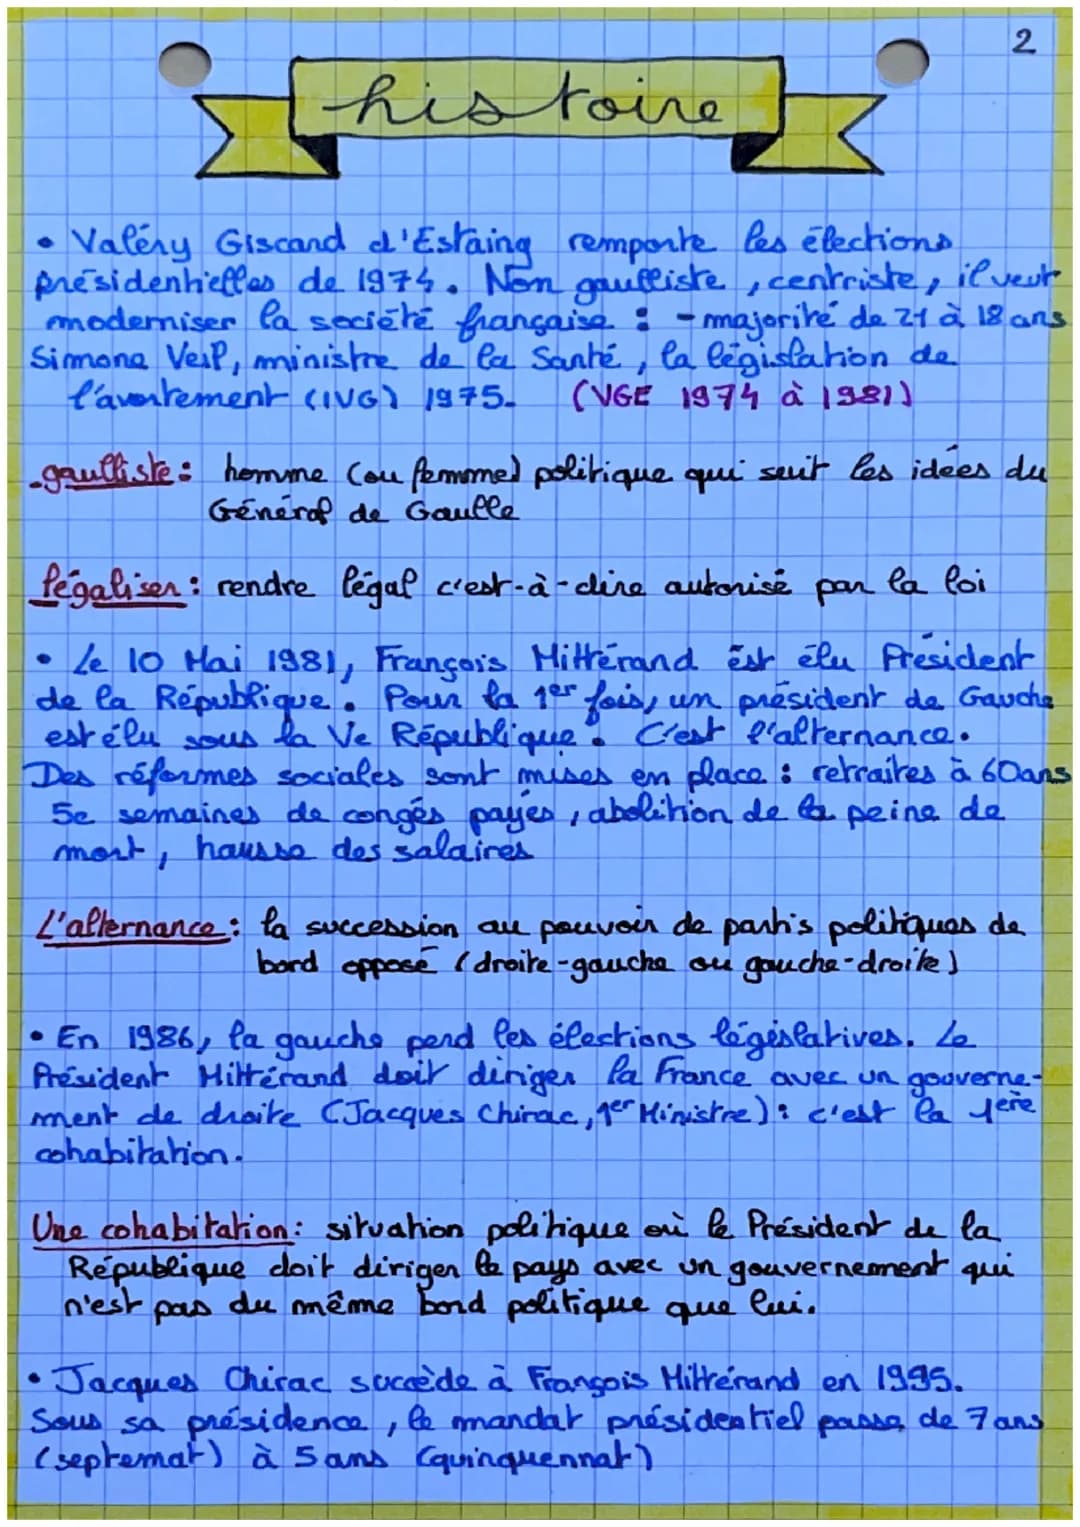 2
histoire
• Valéry Giscard d'Estaing remporte les élections
présidentielles de 1974. Non gaulliste, centriste, il veut
moderniser la société française : - majorité de 21 à 18 ans
Simone Veil, ministre de la Santé, la législation de
l'avortement (IVG) 1975. (VGE 1974 à 1981)
.gaulliste : homme (ou femme) politique qui suit les idées du
Général de Gaulle
légaliser : rendre légal c'est-à-dire autorisé par la loi
• Le 10 Mai 1981, François Mittérand est élu Président
de la République. Pour la 1er fois, un président de Gauche
est élu sous la Ve République. C'est l'alternance.
Des réformes sociales sont mises en place : retraites à 60ans
5e semaines de congés payés, abolition de la peine de
mort, hausse des salaires
L'alternance : la succession au pouvoir de partis politiques de
bord opposé (droite-gauche ou gauche-droite)
• En 1986, la gauche perd les élections législatives. Le
Président Mittérand doit diriger la France avec un gouverne-
ment de droite (Jacques Chirac, 1er Ministre) : c'est la 1ère
cohabitation.
Une cohabitation : situation politique où le Président de la
République doit diriger le pays avec un gouvernement qui
n'est pas du même bord politique que lui.
• Jacques Chirac succède à François Mittérand en 1995.
Sous sa présidence, le mandat présidentiel passe de 7 ans
(septemat) à 5 ans (quinquennat)